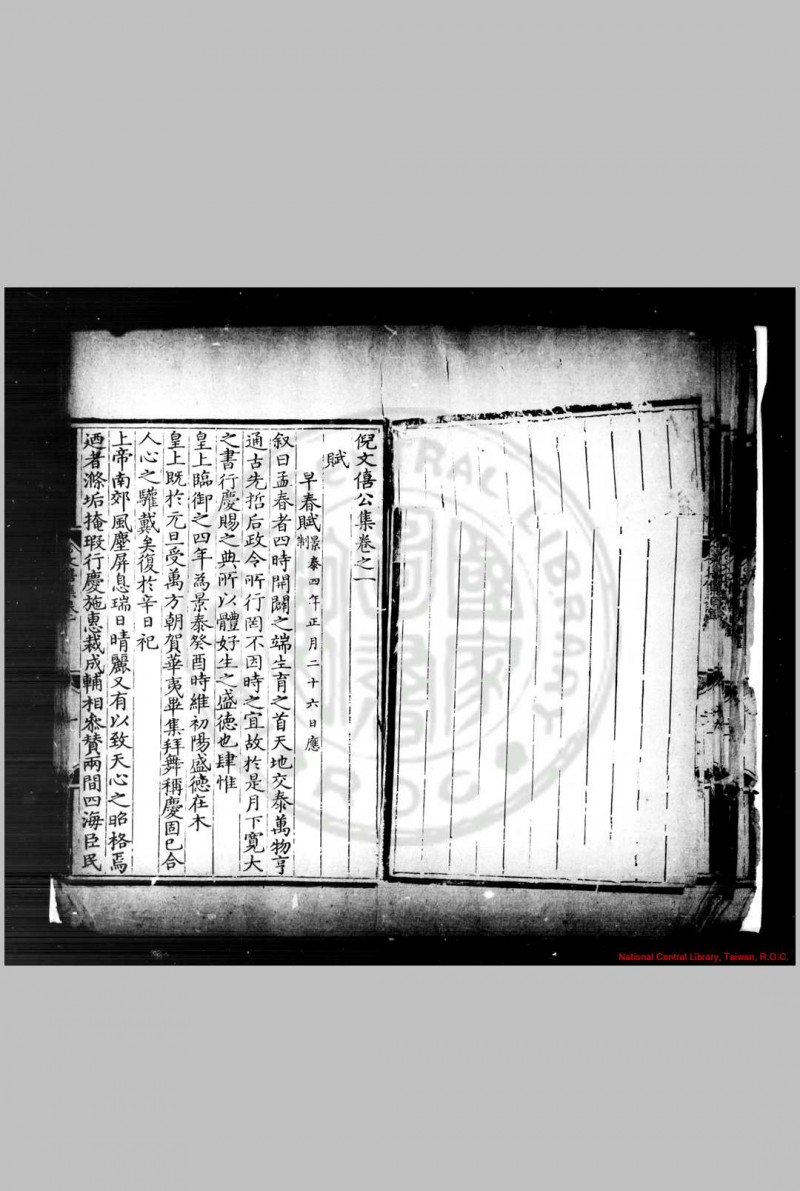 倪文僖公集卷之一
賦
早春賦景泰四年正月二十六日應制
叙曰孟春者四時開闢之端生育之首天地交泰萬物亨
通古先哲后政令所行罔不因時之宜故於是月下寬大
之書行慶賜之典所以體好生之盛德也肆惟
皇上臨御之四年為景泰癸酉時維初陽盛德在木
皇上既於元旦受萬方朝賀華夷畢集拜舞稱慶固已合
人心之驩戴矣復於辛日祀
上帝南郊風塵屏息瑞日晴麗又有以致天心之昭格焉
迺者滌垢掩瑕行慶施惠裁成輔相叅贊兩間四海臣民
National Central Library, Taiwan, R.O.C.